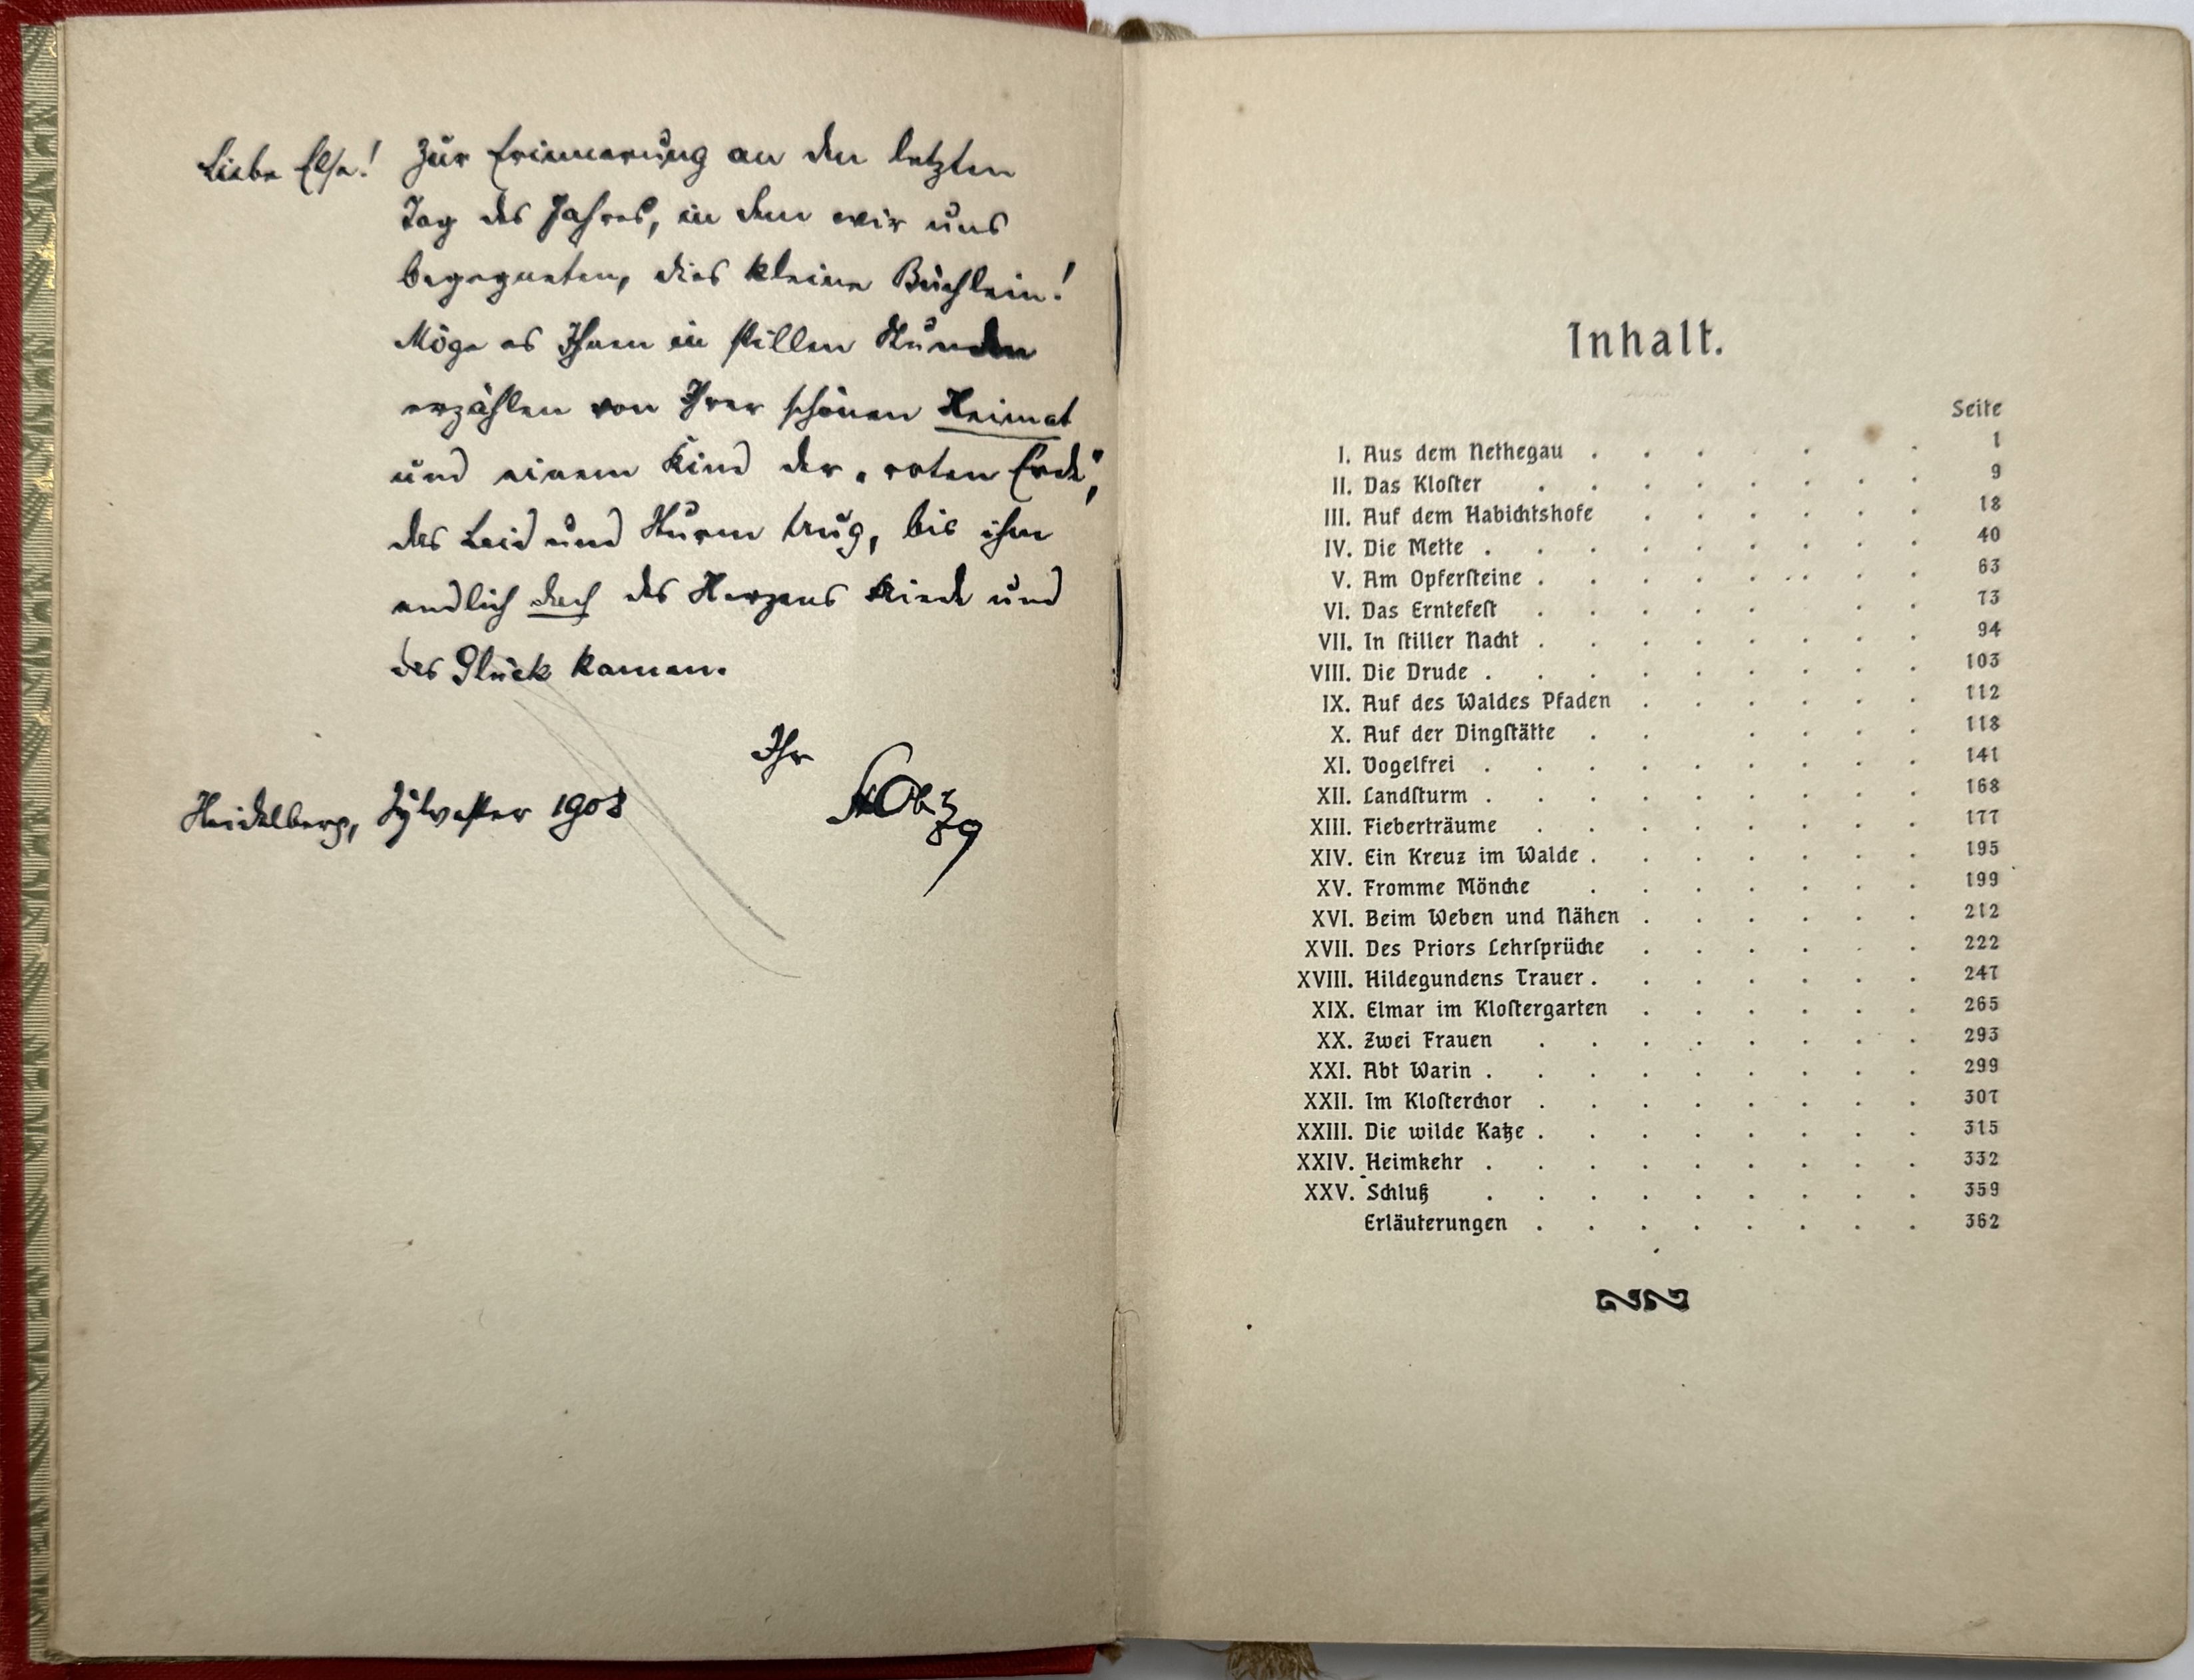 Liebe Else! Zur Erinnerung an den letzten
Tag des Jahres, in dem wir uns
begegneten, dies kleine Büchlein!
Möge es Ihnen in stillen Stunden
erzählen von Ihrer schönen Heimat
und einem Kind der „roten Erde“,
das Leid und Sturm trug, bis ihm
endlich doch des Herzens Friede und
das Glück kamen.
Ihr
Heidelberg, Sylvester 1908
Inhalt.
Seite
I. Aus dem Nethegau . . . . . . 1
II. Das Kloſter . . . . . . . . 9
III. Auf dem Habichtshofe . . . . . . 18
IV. Die Mette . . . . . . . . . 40
V. Am Opferſteine . . . . . . . . 63
VI. Das Erntefeſt . . . . . . . 73
VII. In ſtiller Nacht . . . . . . . . 94
VIII. Die Drude . . . . . . . . . 103
IX. Auf des Waldes Pfaden . . . . . . 112
X. Auf der Dingſtätte . . . . . . 118
XI. Vogelfrei . . . . . . . . . 141
XII. Landſturm . . . . . . . . . 168
XIII. Fieberträume . . . . . . . . 177
XIV. Ein Kreuz im Walde . . . . . . . 195
XV. Fromme Mönche . . . . . . . 199
XVI. Beim Weben und Nähen . . . . . . 212
XVII. Des Priors Lehrſprüche . . . . . . 222
XVIII. Hildegundens Trauer . . . . . . . 247
XIX. Elmar im Kloſtergarten . . . . . . 265
XX. Zwei Frauen . . . . . . . . 293
XXI. Abt Warin . . . . . . . . . 299
XXII. Im Kloſterchor . . . . . . . . 307
XXIII. Die wilde Katze . . . . . . . . 315
XXIV. Heimkehr . . . . . . . . . 332
XXV. Schluß . . . . . . . . . 359
Erläuterungen . . . . . . . . 362